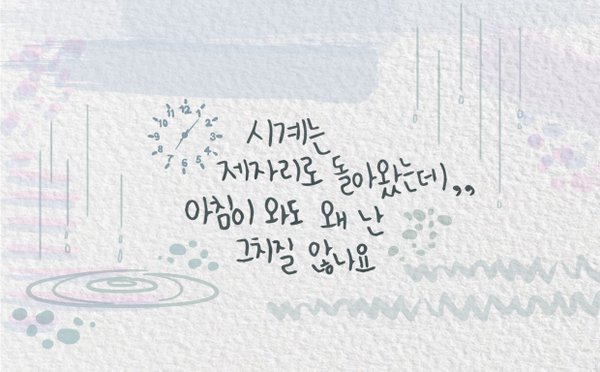 12
1
2
3
4
5
6
7
8
9
10
11
시계는
제자리로 돌아왔는데,,
아침이 와도 왜 난
그치질 않나요